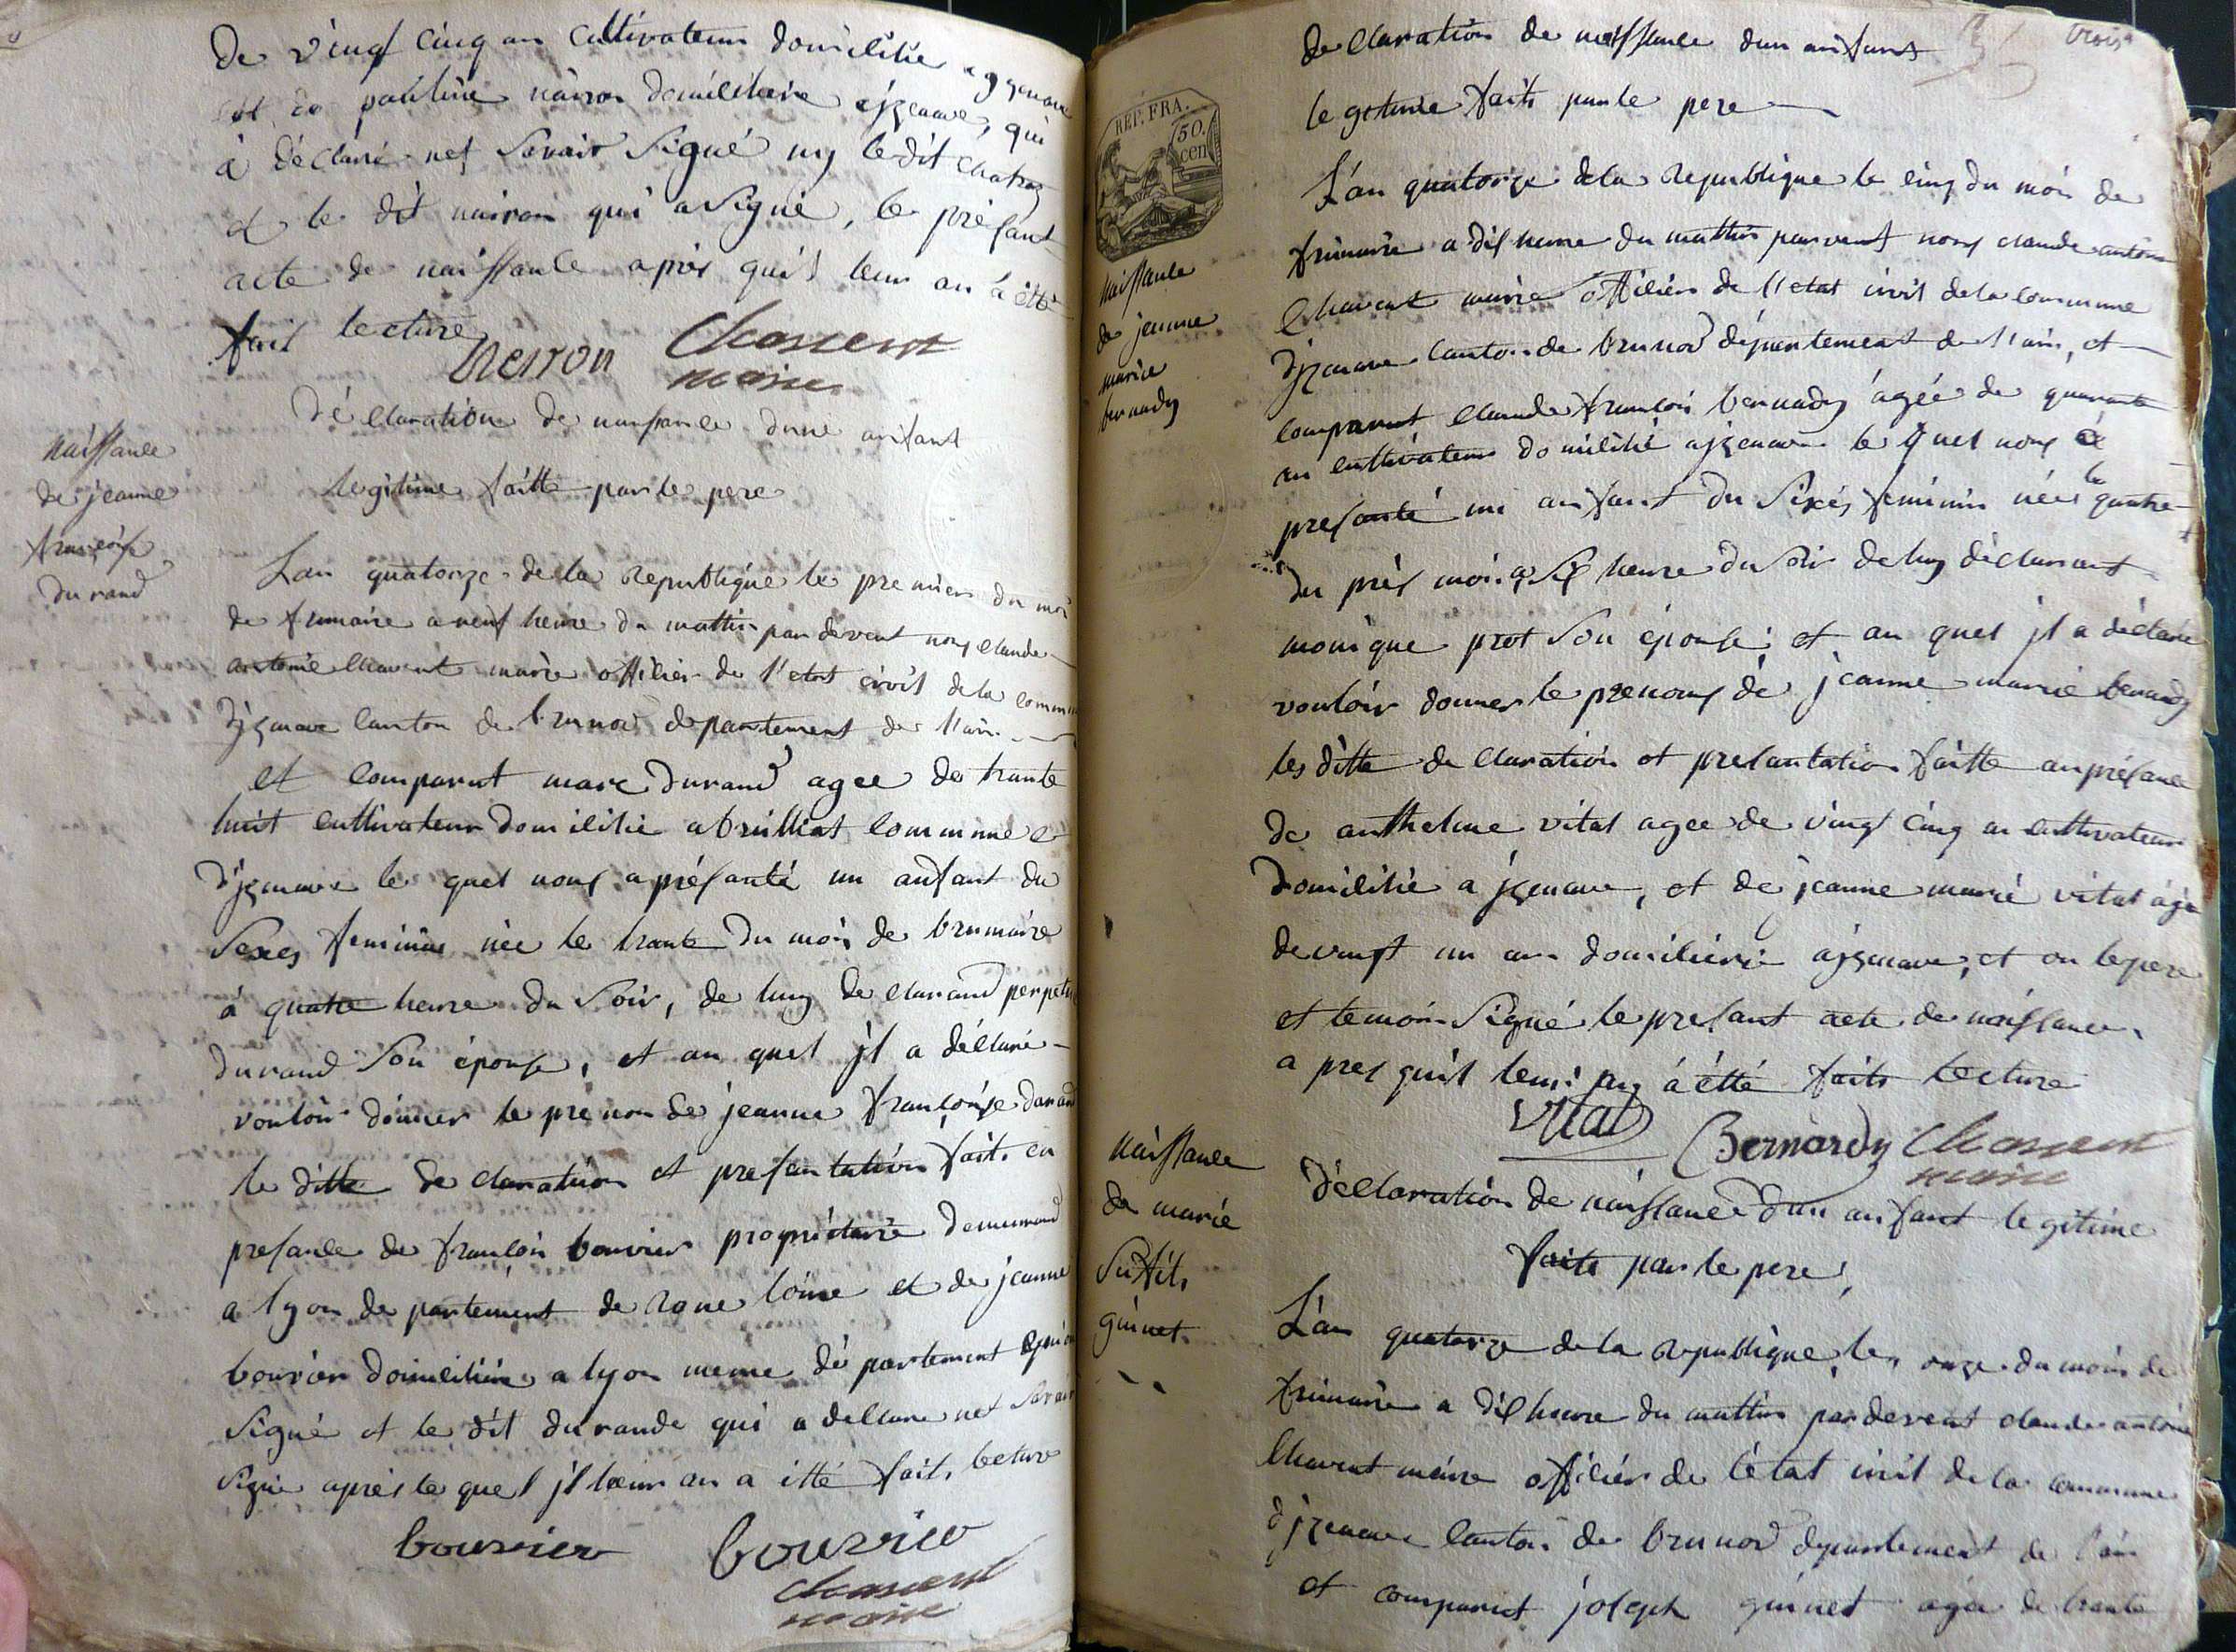 De vingt cinq an cultivateur domicilié
et de pauline nairon domiciliere ajzenave, qui
à déclaré net Savair Signé ny le dit
et le dit nairon qui a Signé, le présant
acte de naissance après qui's leur an à étté
fait lecture
neiron Chavent
maire
Naissance
de jeanne
françoise
Durand
Déclaration de naissance dune anfant
legitime faitte par le pere
Lan quatorze de la Republique le premier du moi
de frimaire a neuf heure du mattin par devent nous claude
antoine Chavent maire officier de l'etat civil de la commune
Djzenave Canton de brunod departement de l'ain
et Comparut marc Durand agee de trante
huit cultivateur domicilié a brilliat Commune
Djzenave le quel nous a présanté un anfant du
Sexes feminin née le trante du mois de brumaire
à quatre heure du Soir, de luy declarand perpetue
Durand Son épouse, et au quel jl a déclaré
vouloir donner le prénon de jeanne françoise durand
le ditte declaration et presantation faite en
presance de françois bouvier propriétaire demeurand
a lyon departement de Rone loire et de jeanne
bouvier domiciliére a lyon meme département
Signé et le dit durande qui a declare net Savair
Signé après le quel jl leur an a itté faite lecture
bouvier bouvier
Chavent
maire
trois
declaration de naissance dun anfant
legitime faite par le pere
REP. FRA.
50.
cen
Naissance
de jeanne
marie
bernady
L'an quatorze de la Republique le cinq du mois de
frimaire a dix heure du mattin par devent nous claude antoine
Chavent maire officier de l'etat civil de la commune
Djzenave Canton de brunod département de l'ain, et
comparut claude françois bernady agée de quarante
an cultivateur domicilié ajzenave le quel nous a
presanté un anfant du Sixes feminin née le quatre
du près mois a Six heure du Soir de luy déclarant
monique prot Son épouse; et au quel jl a déclaré
vouloir donner le prenons de jeanne marie bernady
les ditte declaration et presantation faitte an présance
de anthelme vital agee de vingt cinq an cultivateur
Domicilié a jzenave, et de jeanne marie vital agé
de vingt un an domiciliérè ajzenave, et on le pere
et temoin Signé le presant acte de naissance
a pres quil leur any à étté faite lecture
Vital Bernardy Chavent
maire
Naissance
de marie
guinet
déclaration de naissance dun anfant legitime
faite par le pere,
L'an quatorze de la Republique, le onze du mois de
frimaire a dix heure du mattin par devent claude antoine
Chavent maire officier de l'état civil de la commune
djzenave Canton de brunod departement de l'ain
et comparut joseph guinet agée de trante